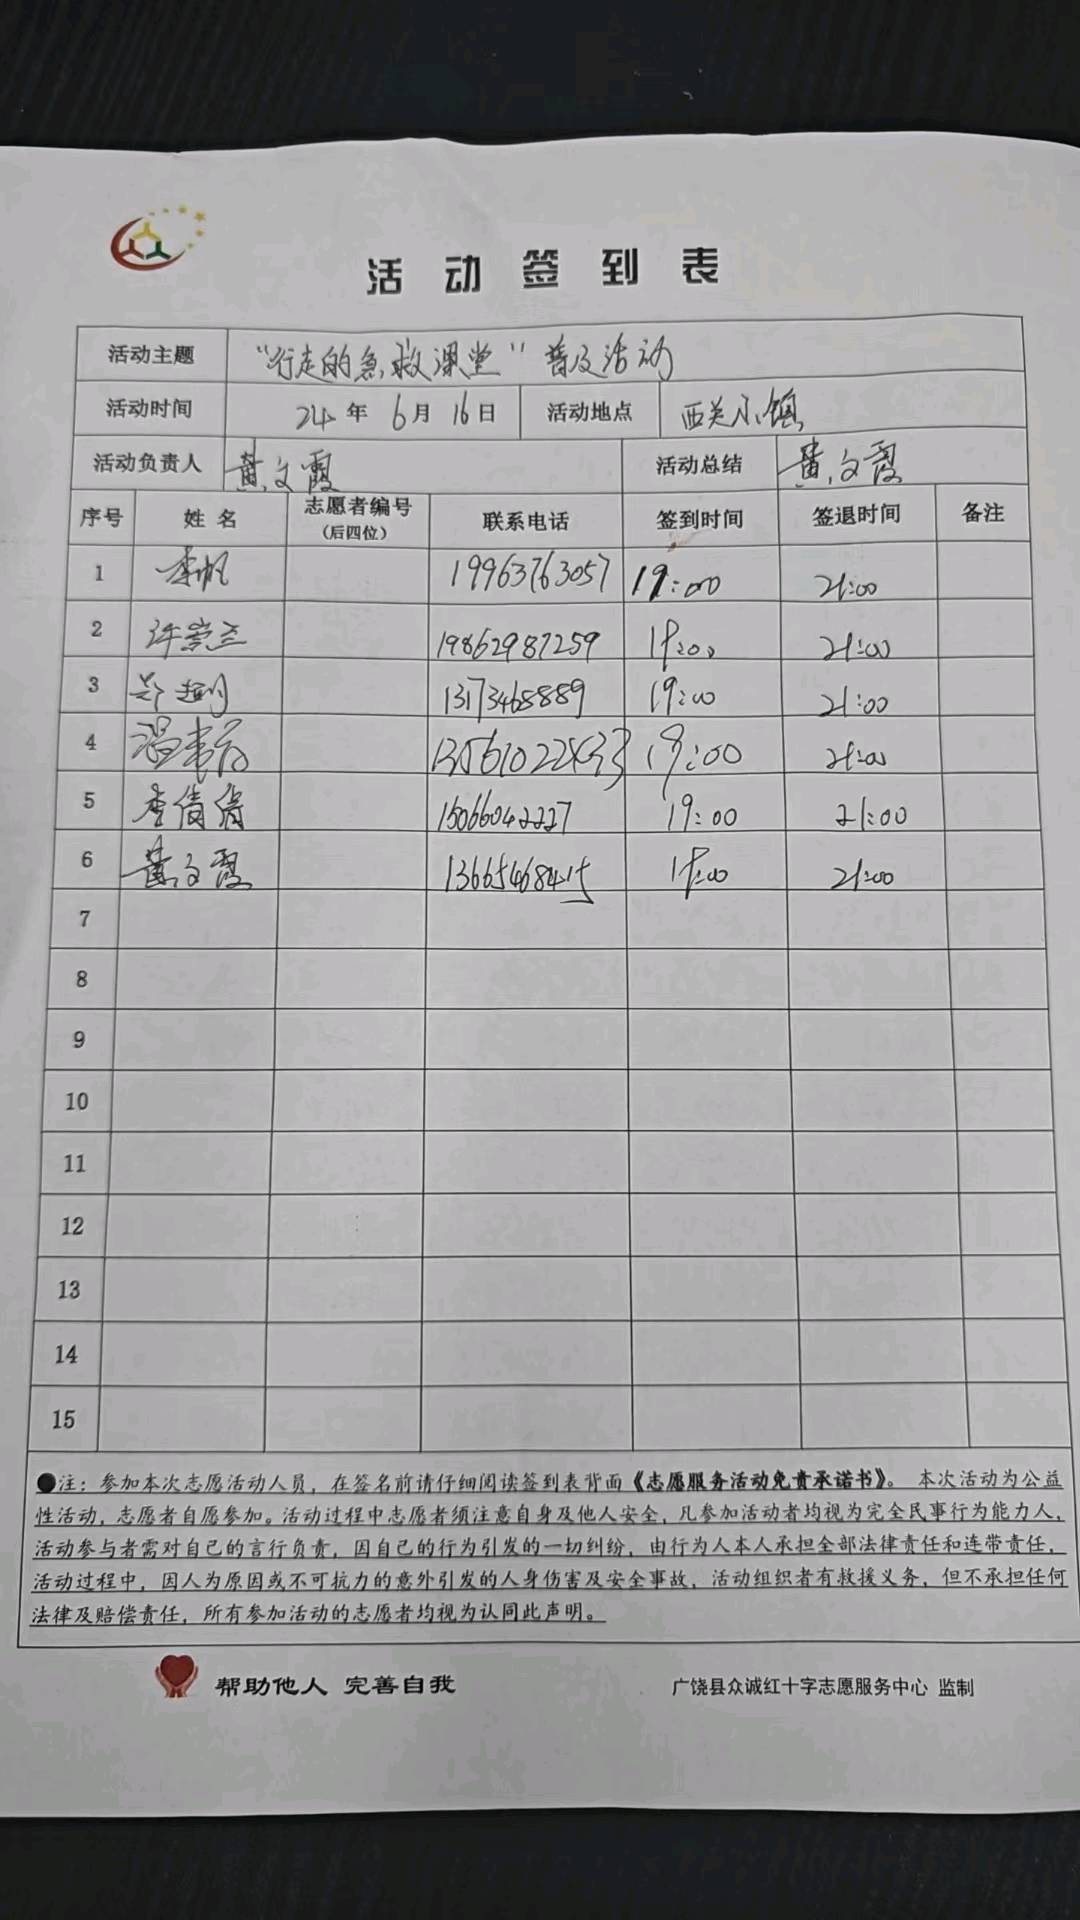 活动签到表
活动主题 “行走的急救课堂”普及活动
活动时间 24年6月16日 活动地点 西关小镇
活动负责人 黄文霞 活动总结 黄文霞
序号 姓名 志愿者编号（后四位） 联系电话 签到时间 签退时间 备注
1 李帆 19963763057 19:00 21:00
2 许崇兰 19862987259 19:00 21:00
3 13173468889 19:00 21:00
4 19:00 21:00
5 李倩倩 15066042227 19:00 21:00
6 黄文霞 13665468415 19:00 21:00
7
8
9
10
11
12
13
14
15
●注：参加本次志愿活动人员，在签名前请仔细阅读签到表背面《志愿服务活动免责承诺书》。 本次活动为公益
性活动，志愿者自愿参加。活动过程中志愿者须注意自身及他人安全，凡参加活动者均视为完全民事行为能力人，
活动参与者需对自己的言行负责，因自己的行为引发的一切纠纷，由行为人本人承担全部法律责任和连带责任，
活动过程中，因人为原因或不可抗力的意外引发的人身伤害及安全事故，活动组织者有救援义务，但不承担任何
法律及赔偿责任，所有参加活动的志愿者均视为认同此声明。
帮助他人 完善自我 广饶县众诚红十字志愿服务中心 监制